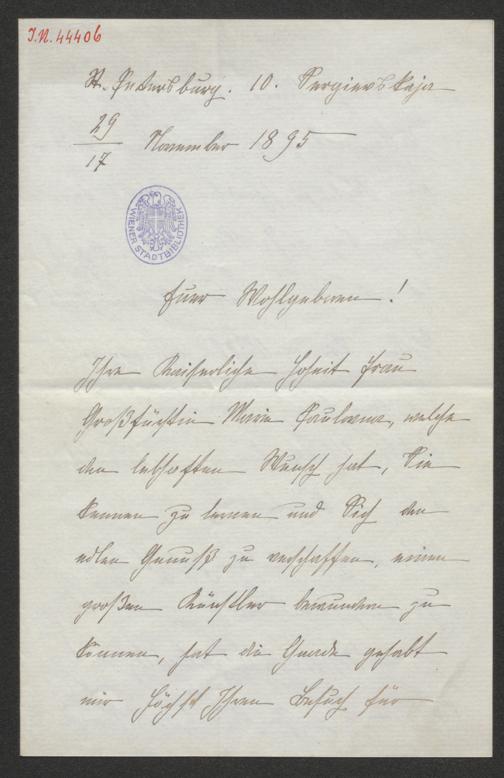 J.N. 44406
St. Petersburg. 10. Sergiewskaja
29
17 November 1895
WIENER STADTBIBLIOTHEK
Euer Wohlgeboren!
Ihre Kaiserliche Hoheit Frau
Großfürstin Maria Paulowna, welche
den lebhaften Wunsch hat, Sie
kennen zu lernen und Sich den
edlen Genuß zu verschaffen, einen
großen Künstler bewundern zu
können, hat die Gnade gehabt
mir Höchst Ihren Besuch für